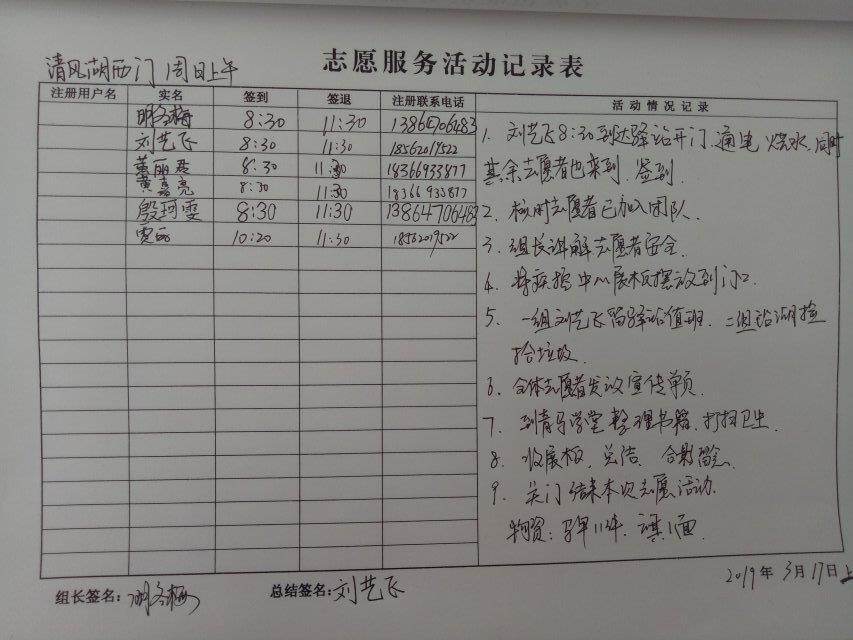 志愿服务活动记录表
清风湖西门 周日上午
注册用户名 实名 签到 签退 注册联系电话 活动情况记录
胡冬梅 8:30 11:30 13864706483
刘艺飞 8:30 11:30 18562019522
黄丽君 8:30 11:30 18366933877
黄嘉亮 8:30 11:30 18366933877
殷珂雯 8:30 11:30 13864706483
10:20 11:30 18562019522
1. 刘艺飞8:30到达驿站开门、通电、烧水、同时
其余志愿者也来到、签到.
2. 核对志愿者已加入团队.
3. 组长讲解志愿者安全.
4. 将疾控中心展板摆放到门口.
5. 一组刘艺飞留驿站值班. 二组沿湖捡
拾垃圾.
6. 全体志愿者发放宣传单页.
7. 到青马学堂整理书籍、打扫卫生.
8. 收展板、总结、合影留念.
9. 关门结束本次志愿活动.
物资: 马甲11件、旗1面.
2019年3月17日上
组长签名: 胡冬梅 总结签名: 刘艺飞